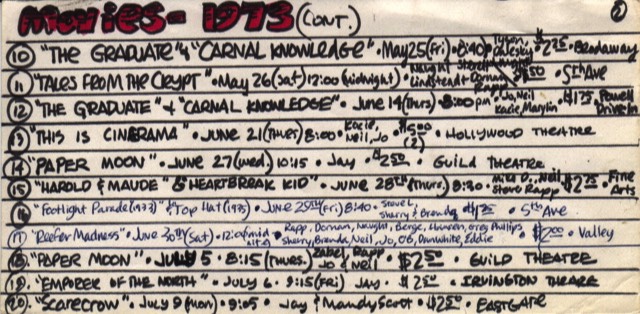 MOVIES - 1973 (CONT.) 2
10 "THE GRADUATE" & "CARNAL KNOWLEDGE" • May 25 (Fri) • 8:40 $2.75 • Broadway
11 "TALES FROM THE CRYPT" • May 26 (Sat) 12:00 (midnight) Naught Dornan Rapp $1.50 • 5th Ave
12 "THE GRADUATE" & "CARNAL KNOWLEDGE" • JUNE 14 (Thurs) • 8:00 pm • Jo, Neil Kacie, Marylin • $1.75 Powell Drive In
13 "THIS IS CINERAMA" • JUNE 21 (THURS) 8:00 • Kacie, Neil, Jo • $5.00 (2) • HOLLYWOOD THEATRE
14 "PAPER MOON" • JUNE 27 (wed.) 10:15 • Jay • $2.50 • GUILD THEATRE
15 "HAROLD & MAUDE" & "HEARTBREAK KID" • JUNE 28TH (Thurs.) 8:30 • Mike D., Neil Steve Rapp $2.75 • Fine Arts
16 "Footlight Parade (1933) & Top Hat (1935) • JUNE 29TH (Fri) 8:40 • Steve L. Sherry & Brenda • $1.75 • 5th Ave
17 "Reefer Madness" • June 30th (Sat) • 12:00 (midnite) • Rapp, Dornan, Naught, Berge, Laureen, Greg Phillips Sherry, Brenda, Neil, Jo, OB, Dan White, Eddie • $2.00 • Valley
18 "PAPER MOON" • JULY 5 • 8:15 (THURS.) Jo & Rapp Neil • $2.50 • GUILD THEATRE
19 "EMPEROR OF THE NORTH" • JULY 6 • 9:15 (FRI) Jay • $2.50 • IRVINGTON THEATRE
20 "Scarecrow" • JULY 9 (mon) • 9:05 • Jay & Mandy Scott • $2.50 • EASTGATE